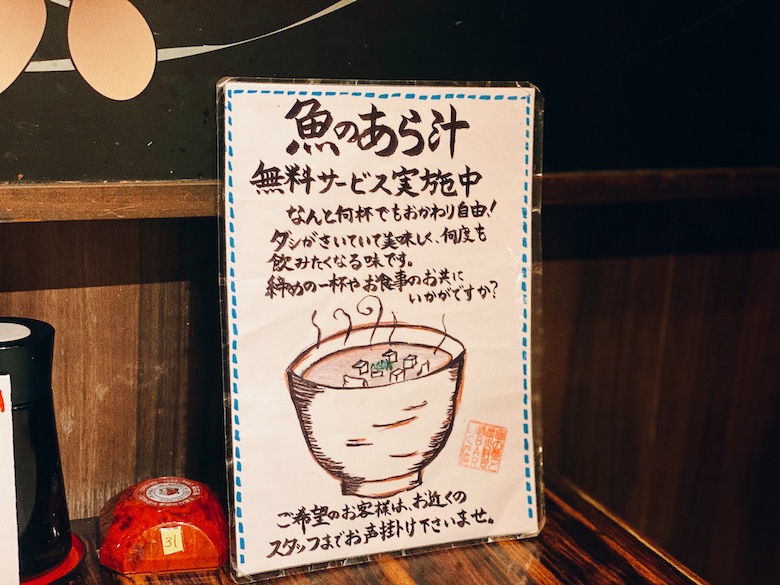 魚のあら汁
無料サービス実施中
なんと何杯でもおかわり自由!
ダシがきいていて美味しく、何度も
飲みたくなる味です。
締めの一杯やお食事のお共に
いかがですか?
ご希望のお客様は、お近くの
スタッフまでお声掛け下さいませ。
31